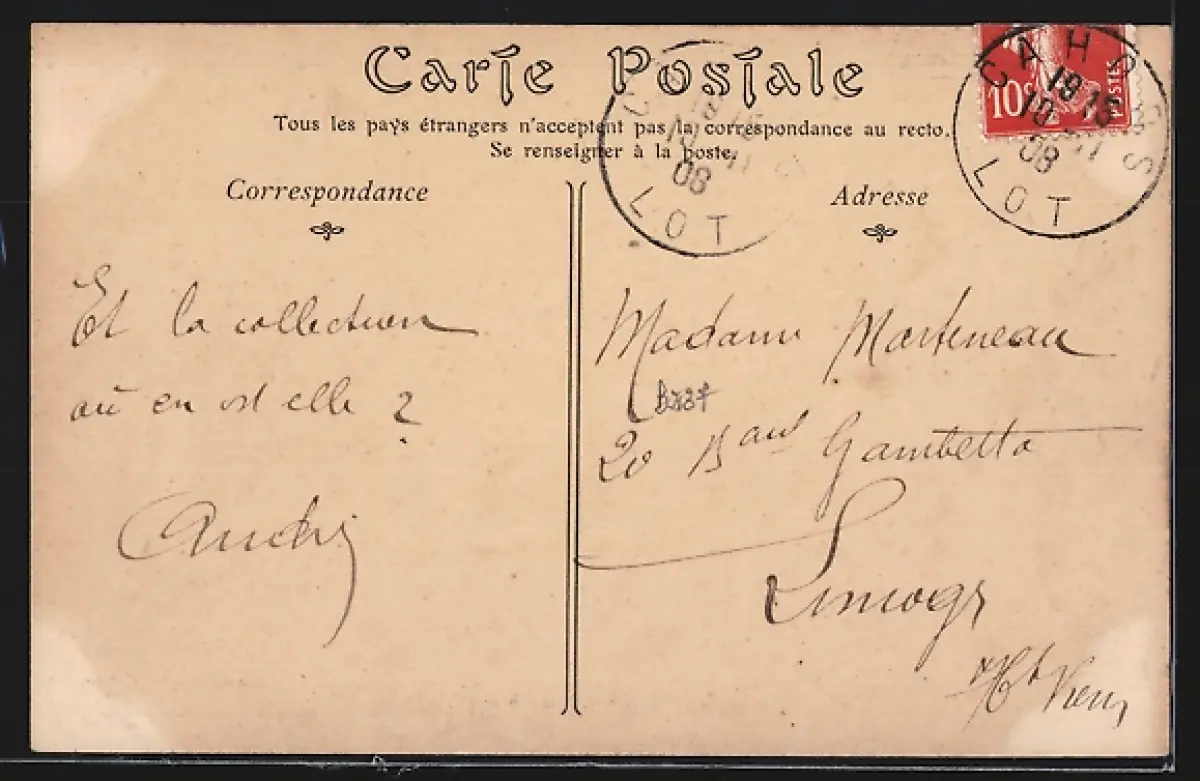 Carte Postale
Tous les pays étrangers n'acceptent pas la correspondance au recto.
Se renseigner à la poste.
Correspondance
Adresse
10c
POSTES
CAHORS
19 15
10
08
LOT
08
LOT
Et la collection
où en est elle ?
André
Madame Marteneau
20 Bard Gambetta
Limoges
Hte Vienn